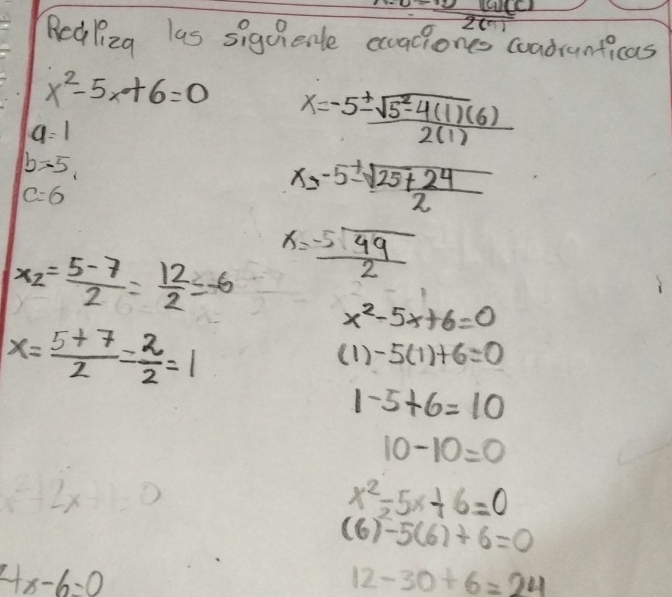 2(a)
Realiza las siguiente ecuaciones cuadranticas
x²-5x+6=0
a=1
b=5
c=6
x=-5±√5²-4(1)(6)
2(1)
x=-5±√25+24
2
x=-5√49
2
x₂=5-7/2=12/2=-6
x=5+7/2=2/2=1
x²-5x+6=0
(1)-5(1)+6=0
1-5+6=10
10-10=0
x²-5x+6=0
(6)²-5(6)+6=0
12-30+6=24
x²+2x+1=0
4x-6=0